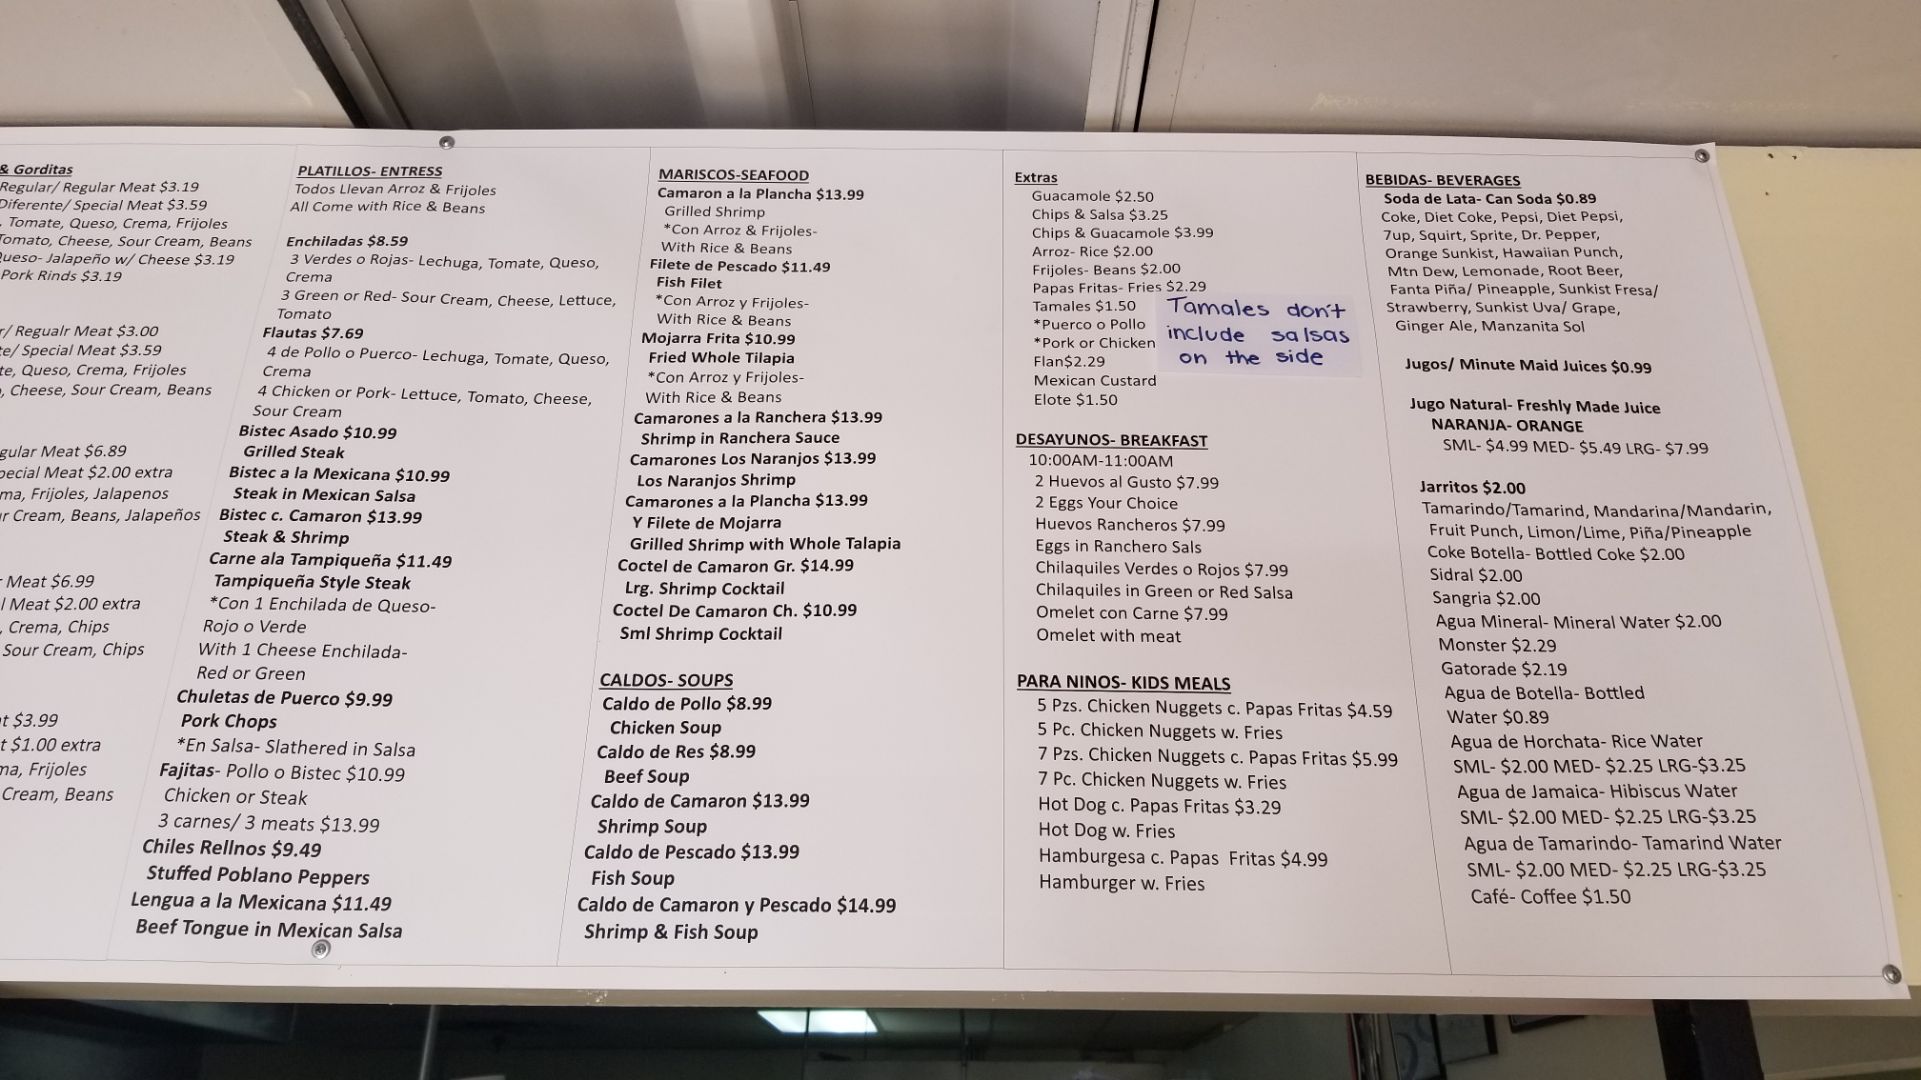 & Gorditas
Regular/ Regular Meat $3.19
Diferente/ Special Meat $3.59
, Tomate, Queso, Crema, Frijoles
Tomato, Cheese, Sour Cream, Beans
Queso- Jalapeño w/ Cheese $3.19
Pork Rinds $3.19
r/ Regualr Meat $3.00
te/ Special Meat $3.59
te, Queso, Crema, Frijoles
, Cheese, Sour Cream, Beans
gular Meat $6.89
pecial Meat $2.00 extra
ma, Frijoles, Jalapenos
ur Cream, Beans, Jalapeños
r Meat $6.99
l Meat $2.00 extra
, Crema, Chips
Sour Cream, Chips
at $3.99
t $1.00 extra
ma, Frijoles
Cream, Beans
PLATILLOS- ENTRESS
Todos Llevan Arroz & Frijoles
All Come with Rice & Beans
Enchiladas $8.59
3 Verdes o Rojas- Lechuga, Tomate, Queso,
Crema
3 Green or Red- Sour Cream, Cheese, Lettuce,
Tomato
Flautas $7.69
4 de Pollo o Puerco- Lechuga, Tomate, Queso,
Crema
4 Chicken or Pork- Lettuce, Tomato, Cheese,
Sour Cream
Bistec Asado $10.99
Grilled Steak
Bistec a la Mexicana $10.99
Steak in Mexican Salsa
Bistec c. Camaron $13.99
Steak & Shrimp
Carne ala Tampiqueña $11.49
Tampiqueña Style Steak
*Con 1 Enchilada de Queso-
Rojo o Verde
With 1 Cheese Enchilada-
Red or Green
Chuletas de Puerco $9.99
Pork Chops
*En Salsa- Slathered in Salsa
Fajitas- Pollo o Bistec $10.99
Chicken or Steak
3 carnes/ 3 meats $13.99
Chiles Rellnos $9.49
Stuffed Poblano Peppers
Lengua a la Mexicana $11.49
Beef Tongue in Mexican Salsa
MARISCOS-SEAFOOD
Camaron a la Plancha $13.99
Grilled Shrimp
*Con Arroz & Frijoles-
With Rice & Beans
Filete de Pescado $11.49
Fish Filet
*Con Arroz y Frijoles-
With Rice & Beans
Mojarra Frita $10.99
Fried Whole Tilapia
*Con Arroz y Frijoles-
With Rice & Beans
Camarones a la Ranchera $13.99
Shrimp in Ranchera Sauce
Camarones Los Naranjos $13.99
Los Naranjos Shrimp
Camarones a la Plancha $13.99
Y Filete de Mojarra
Grilled Shrimp with Whole Talapia
Coctel de Camaron Gr. $14.99
Lrg. Shrimp Cocktail
Coctel De Camaron Ch. $10.99
Sml Shrimp Cocktail
CALDOS- SOUPS
Caldo de Pollo $8.99
Chicken Soup
Caldo de Res $8.99
Beef Soup
Caldo de Camaron $13.99
Shrimp Soup
Caldo de Pescado $13.99
Fish Soup
Caldo de Camaron y Pescado $14.99
Shrimp & Fish Soup
Extras
Guacamole $2.50
Chips & Salsa $3.25
Chips & Guacamole $3.99
Arroz- Rice $2.00
Frijoles- Beans $2.00
Papas Fritas- Fries $2.29
Tamales $1.50
*Puerco o Pollo
*Pork or Chicken
Flan$2.29
Mexican Custard
Elote $1.50
Tamales don't
include salsas
on the side
DESAYUNOS- BREAKFAST
10:00AM-11:00AM
2 Huevos al Gusto $7.99
2 Eggs Your Choice
Huevos Rancheros $7.99
Eggs in Ranchero Sals
Chilaquiles Verdes o Rojos $7.99
Chilaquiles in Green or Red Salsa
Omelet con Carne $7.99
Omelet with meat
PARA NINOS- KIDS MEALS
5 Pzs. Chicken Nuggets c. Papas Fritas $4.59
5 Pc. Chicken Nuggets w. Fries
7 Pzs. Chicken Nuggets c. Papas Fritas $5.99
7 Pc. Chicken Nuggets w. Fries
Hot Dog c. Papas Fritas $3.29
Hot Dog w. Fries
Hamburgesa c. Papas Fritas $4.99
Hamburger w. Fries
BEBIDAS- BEVERAGES
Soda de Lata- Can Soda $0.89
Coke, Diet Coke, Pepsi, Diet Pepsi,
7up, Squirt, Sprite, Dr. Pepper,
Orange Sunkist, Hawaiian Punch,
Mtn Dew, Lemonade, Root Beer,
Fanta Piña/ Pineapple, Sunkist Fresa/
Strawberry, Sunkist Uva/ Grape,
Ginger Ale, Manzanita Sol
Jugos/ Minute Maid Juices $0.99
Jugo Natural- Freshly Made Juice
NARANJA- ORANGE
SML- $4.99 MED- $5.49 LRG- $7.99
Jarritos $2.00
Tamarindo/Tamarind, Mandarina/Mandarin,
Fruit Punch, Limon/Lime, Piña/Pineapple
Coke Botella- Bottled Coke $2.00
Sidral $2.00
Sangria $2.00
Agua Mineral- Mineral Water $2.00
Monster $2.29
Gatorade $2.19
Agua de Botella- Bottled
Water $0.89
Agua de Horchata- Rice Water
SML- $2.00 MED- $2.25 LRG-$3.25
Agua de Jamaica- Hibiscus Water
SML- $2.00 MED- $2.25 LRG-$3.25
Agua de Tamarindo- Tamarind Water
SML- $2.00 MED- $2.25 LRG-$3.25
Café- Coffee $1.50